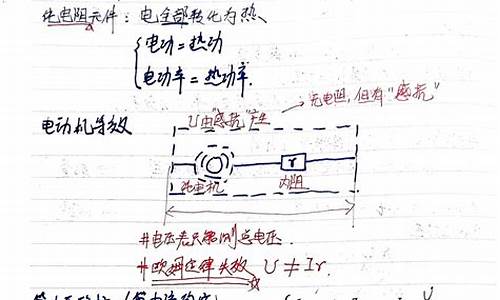 纯电阻元件：电全部转化为热、
电功＝热功
电功率＝热功率.
无电阻，但有“感抗”
电动机等效
U由“感抗”产生
r
纯电机
内阻
#电压表只能测总电压.
#欧姆定律失效 U≠Ir.